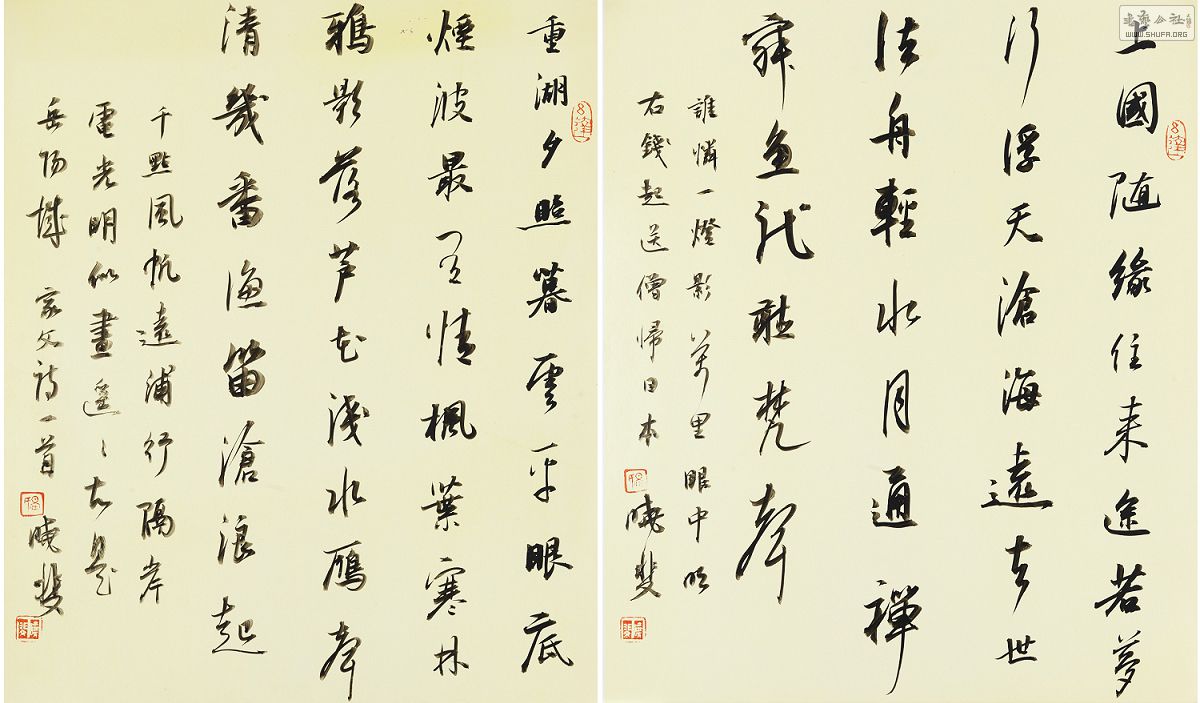 書藝公社
WWW.SHUFA.ORG
上國随緣住来途若夢
行浮天滄海遠去世
法舟輕水月通禪
寂魚龍聽梵聲
誰憐一燈影萬里眼中明
右錢起送僧歸日本
曉斐
重湖夕照暮雲平眼底
煙波最情楓葉寒林
鴉影落芦花淺水雁聲
清幾番漁笛滄浪起
千點風帆遠浦行隔岸
電光明似晝遥々知是
岳陽城 家父詩一首
曉斐